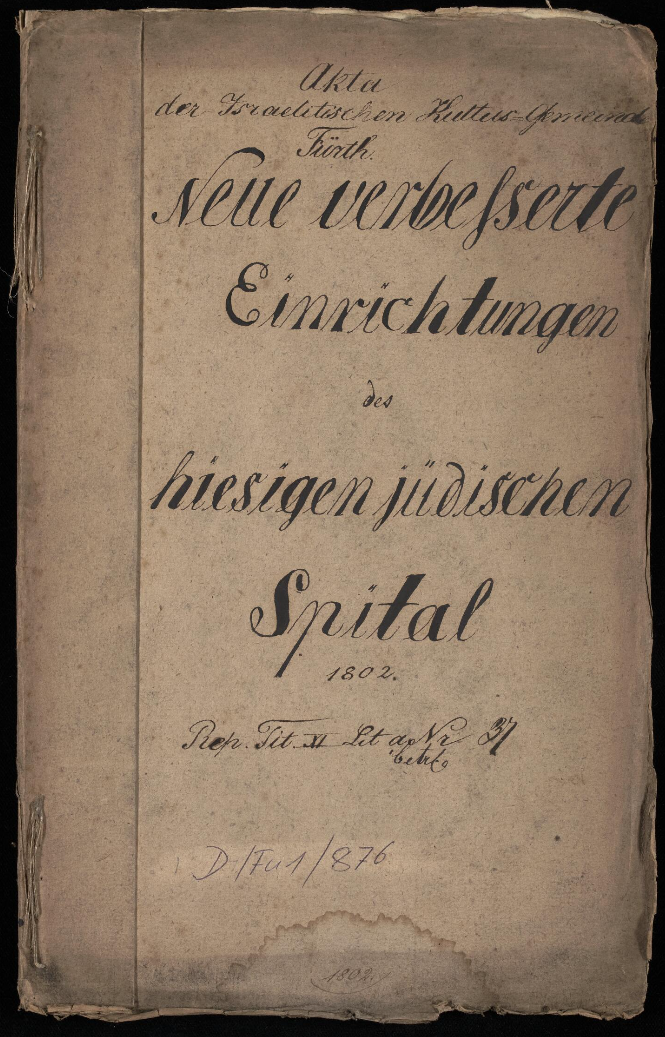 Akta
der Israelitischen Kultus-Gemeinde
Fürth.
Neue verbeſserte
Einrichtungen
des
hiesigen jüdischen
Spital
1802.
Rep. Tit. XI Lit a. Nr 37
betr.
D/Fu1/876
1802.